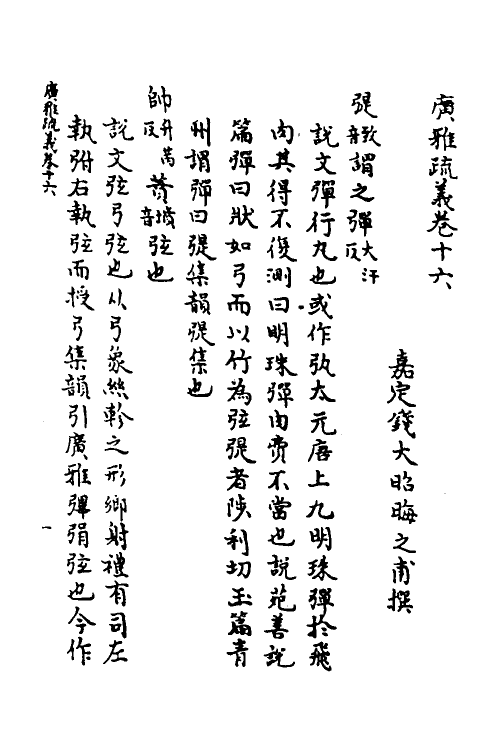 廣雅疏義卷十六
嘉定錢大昭晦之甫撰
弫音致謂之彈大汗反
說文彈行丸也或作弘太元唐上九明珠彈於飛
肉其得不復測曰明珠彈肉費不當也說苑善說
篇彈曰狀如弓而以竹為弦弫者陟利切玉篇青
州謂彈曰弫集韻弫集也
帥升芮反𦸣音墳弦也
說文弦弓弦也从弓象絲軫之形鄉射禮有司左
執弣右執弦而授弓集韻引廣雅彃弲弦也今作
廣雅疏義卷十六
一